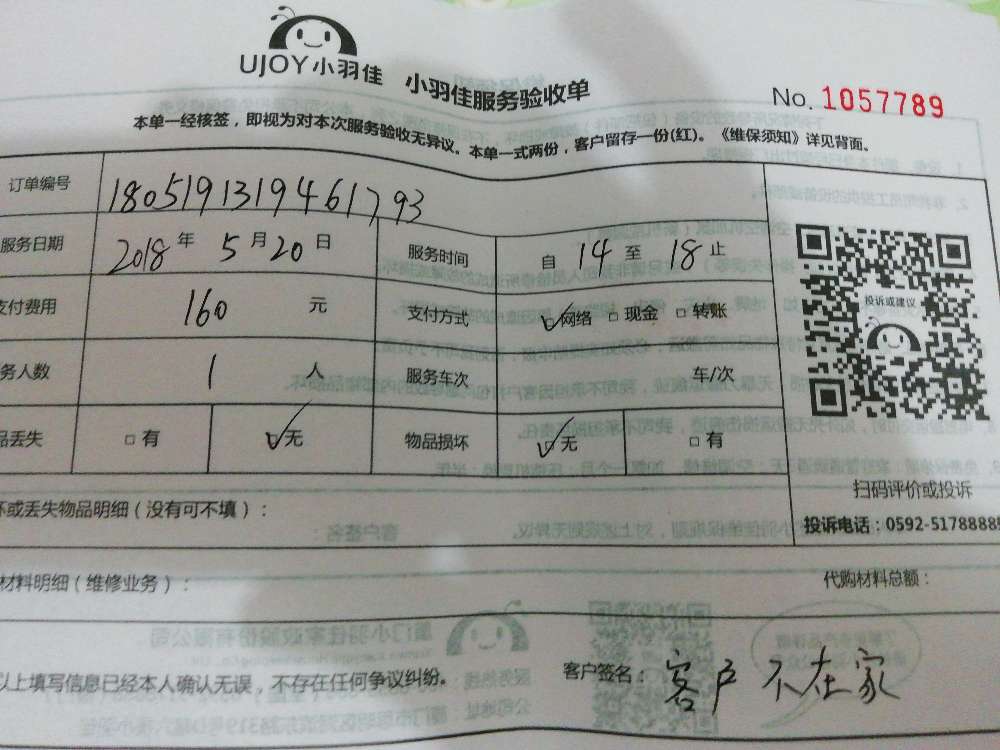 UJOY小羽佳 小羽佳服务验收单
No. 1057789
本单一经核签，即视为对本次服务验收无异议。本单一式两份，客户留存一份(红)。《维保须知》详见背面。
订单编号 18051913194617 93
服务日期 2018 年 5 月 20 日 服务时间 自 14 至 18 止
支付费用 160 元 支付方式 网络 现金 转账
务人数 1 人 服务车次 车/次
品丢失 有 无 物品损坏 无 有
投诉或建议
扫码评价或投诉
投诉电话：0592-5178888
坏或丢失物品明细（没有可不填）：
材料明细（维修业务）： 代购材料总额：
以上填写信息已经本人确认无误，不存在任何争议纠纷。 客户签名：客户不在家